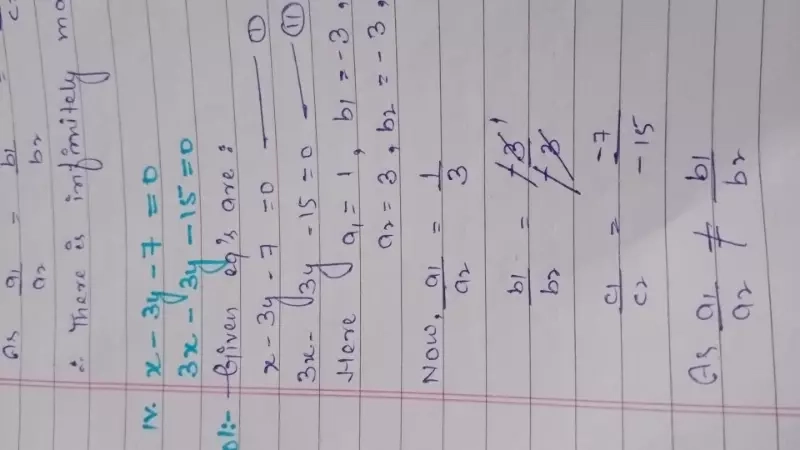 As a1/a2 = b1/b2 =
∴ There is infinitely
iv. x - 3y - 7 = 0
3x - 3y - 15 = 0
Given eq's are:
x - 3y - 7 = 0 — (I)
3x - 3y - 15 = 0 — (II)
Here a1 = 1, b1 = -3,
a2 = 3, b2 = -3,
Now, a1/a2 = 1/3
b1/b2 = -3/-3 1
c1/c2 = -7/-15
As a1/a2 ≠ b1/b2